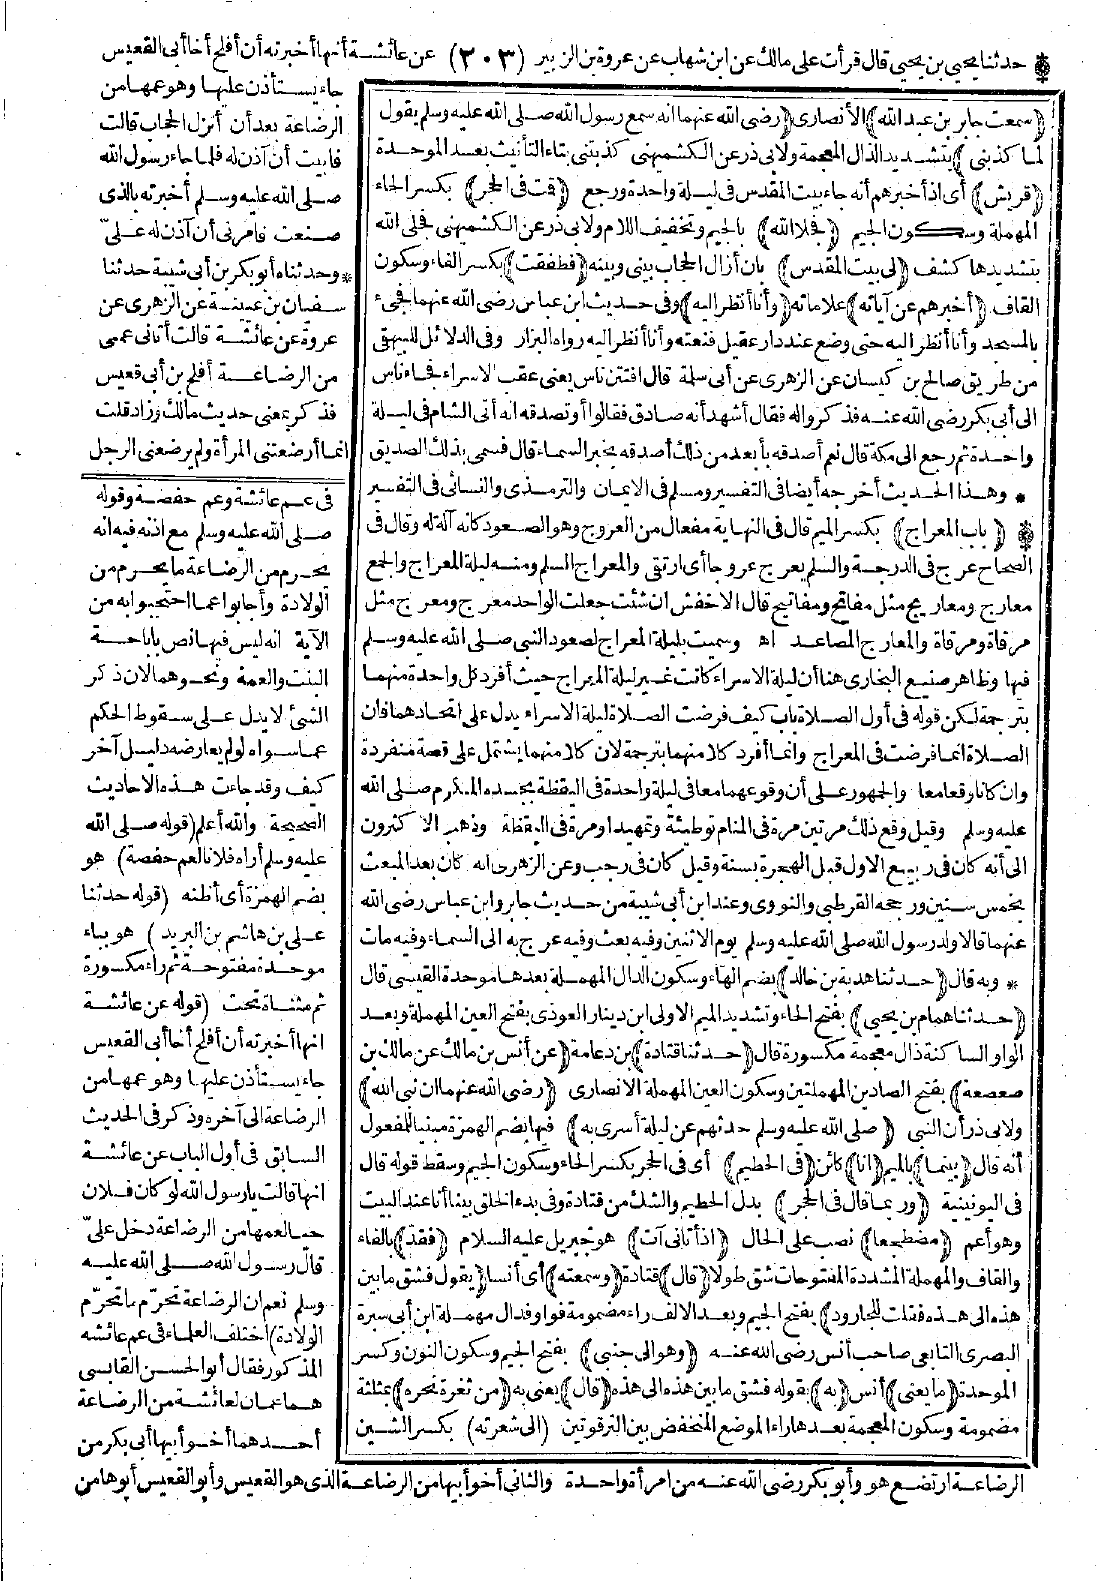 * حدثنا يحيى بن يحيى قال قرأت على مالك عن ابن شهاب عن عروة بن الزبير (٢٠٣) عن عائشة أنها أخبرته أن أفلح أخا أبى القعيس
جاء يستأذن عليها وهو عمها من
الرضاعة بعد أن أنزل الحجاب قالت
فابيت أن آذن له فلما جاء رسول الله
صلى الله عليه وسلم أخبرته بالذى
صنعت فامرنى أن آذن له علىّ
* وحدثناه أبو بكر بن أبى شيبة حدثنا
سفيان بن عيينة عن الزهرى عن
عروة عن عائشة قالت أتانى عمى
من الرضاعة أفلح بن أبى قعيس
فذكر بمعنى حديث مالك وزاد قلت
انما أرضعتنى المرأة ولم يرضعنى الرجل
(سمعت جابر بن عبد الله) الأنصارى (رضى الله عنهما انه سمع رسول الله صلى الله عليه وسلم يقول
لما كذبنى) بتشديد الذال المعجمة ولابى ذر عن الكشميهنى كذبتنى بتاء التأنيث بعد الموحدة
(قريش) أى اذ أخبرهم أنه جاء بيت المقدس فى ليلة واحدة ورجع (قمت فى الحجر) بكسر الحاء
المهملة وسكون الجيم (فجلا الله) بالجيم وتخفيف اللام ولابى ذر عن الكشميهنى فجلى الله
بتشديدها كشف (لى بيت المقدس) بان أزال الحجاب بينى وبينه (فطفقت) بكسر الفاء وسكون
القاف (أخبرهم عن آياته) علاماته (وأنا أنظر اليه) وفى حديث ابن عباس رضى الله عنهما فجىء
بالمسجد وأنا أنظر اليه حتى وضع عند دار عقيل فنعته وأنا أنظر اليه رواه البزار وفى الدلائل للبيهقى
من طريق صالح بن كيسان عن الزهرى عن أبى سلمة قال افتتن ناس يعنى عقب الاسراء فجاء ناس
الى أبى بكر رضى الله عنه فذكروا له فقال أشهد أنه صادق فقالوا أو تصدقه انه أتى الشام فى ليلة
واحدة ثم رجع الى مكة قال نعم أصدقه بأبعد من ذلك أصدقه بخبر السماء قال فسمى بذلك الصديق
* وهذا الحديث أخرجه أيضا فى التفسير ومسلم فى الايمان والترمذى والنسائى فى التفسير
* (باب المعراج) بكسر الميم قال فى النهاية مفعال من العروج وهو الصعود كانه آلة له وقال فى
الصحاح عرج فى الدرجة والسلم يعرج عروجا أى ارتقى والمعراج السلم ومنه ليلة المعراج والجمع
معارج ومعاريج مثل مفاتح ومفاتيح قال الاخفش ان شئت جعلت الواحد معرج ومعرج مثل
مرقاة ومرقاة والمعارج المصاعد اهـ وسميت بليلة المعراج لصعود النبى صلى الله عليه وسلم
فيها وظاهر صنيع البخارى هنا أن ليلة الاسراء كانت غير ليلة المعراج حيث أفرد كل واحدة منهما
بترجمة لكن قوله فى أول الصلاة باب كيف فرضت الصلاة ليلة الاسراء يدل على اتحادهما فان
الصلاة انما فرضت فى المعراج وانما أفرد كلا منهما بترجمة لان كلا منهما يشتمل على قصة منفردة
وان كانا وقعا معا والجمهور على أن وقوعهما معا فى ليلة واحدة فى اليقظة بجسده المكرم صلى الله
عليه وسلم وقيل وقع ذلك مرتين مرة فى المنام توطئة وتمهيدا ومرة فى اليقظة وذهب الاكثرون
الى أنه كان فى ربيع الاول قبل الهجرة بسنة وقيل كان فى رجب وعن الزهرى انه كان بعد المبعث
بخمس سنين ورجحه القرطبى والنووى وعند ابن أبى شيبة من حديث جابر وابن عباس رضى الله
عنهما قالا ولد رسول الله صلى الله عليه وسلم يوم الاثنين وفيه بعث وفيه عرج به الى السماء وفيه مات
* وبه قال (حدثنا هدبة بن خالد) بضم الهاء وسكون الدال المهملة بعدها موحدة القيسى قال
(حدثنا همام بن يحيى) بفتح الحاء وتشديد الميم الاولى ابن دينار العوذى بفتح العين المهملة وبعد
الواو الساكنة ذال معجمة مكسورة قال (حدثنا قتادة) بن دعامة (عن أنس بن مالك عن مالك بن
صعصعة) بفتح الصادين المهملتين وسكون العين المهملة الانصارى (رضى الله عنهما ان نبى الله)
ولابى ذر أن النبى (صلى الله عليه وسلم حدثهم عن ليلة أسرى به) فيها بضم الهمزة مبنيا للمفعول
أنه قال (بينما) بالميم (انا) كائن (فى الحطيم) أى فى الحجر بكسر الحاء وسكون الجيم وسقط قوله قال
فى اليونينية (وربما قال فى الحجر) بدل الحطيم والشك من قتادة وفى بدء الخلق بينا أنا عند البيت
وهو أعم (مضطجعا) نصب على الحال (اذ أتانى آت) هو جبريل عليه السلام (فقدّ) بالفاء
والقاف والمهملة المشددة المفتوحات شق طولا (قال) قتادة (وسمعته) أى أنسا (يقول فشق ما بين
هذه الى هذه فقلت للجارود) بفتح الجيم وبعد الالف راء مضمومة فواو فدال مهملة ابن أبى سبرة
البصرى التابعى صاحب أنس رضى الله عنه (وهو الى جنبى) بفتح الجيم وسكون النون وكسر
الموحدة (ما يعنى) أنس (به) بقوله فشق ما بين هذه الى هذه (قال) يعنى به (من ثغرة نحره) بمثلثة
مضمومة وسكون المعجمة بعدها راء الموضع المنخفض بين الترقوتين (الى شعرته) بكسر الشين
فى عم عائشة وعم حفصة وقوله
صلى الله عليه وسلم مع اذنه فيه انه
يحرم من الرضاعة ما يحرم من
الولادة وأجابوا عما احتجوا به من
الآية انه ليس فيها نص باباحة
البنت والعمة ونحوهما لان ذكر
الشئ لا يدل على سقوط الحكم
عما سواه لو لم يعارضه دليل آخر
كيف وقد جاءت هذه الاحاديث
الصحيحة والله أعلم (قوله صلى الله
عليه وسلم أراه فلانا لعم حفصة) هو
بضم الهمزة أى أظنه (قوله حدثنا
على بن هاشم بن البريد) هو بباء
موحدة مفتوحة ثم راء مكسورة
ثم مثناة تحت (قوله عن عائشة
انها أخبرته أن أفلح أخا أبى القعيس
جاء يستأذن عليها وهو عمها من
الرضاعة الى آخره وذكر فى الحديث
السابق فى أول الباب عن عائشة
انها قالت يا رسول الله لو كان فلان
حيا لعمها من الرضاعة دخل علىّ
قال رسول الله صلى الله عليه
وسلم نعم ان الرضاعة تحرّم ما تحرّم
الولادة) اختلف العلماء فى عم عائشة
المذكور فقال أبو الحسن القابسى
هما عمان لعائشة من الرضاعة
أحدهما أخو أبيها أبى بكر من
الرضاعة ارتضع هو وأبو بكر رضى الله عنه من امرأة واحدة والثانى أخو أبيها من الرضاعة الذى هو القعيس وأبو القعيس أبوها من